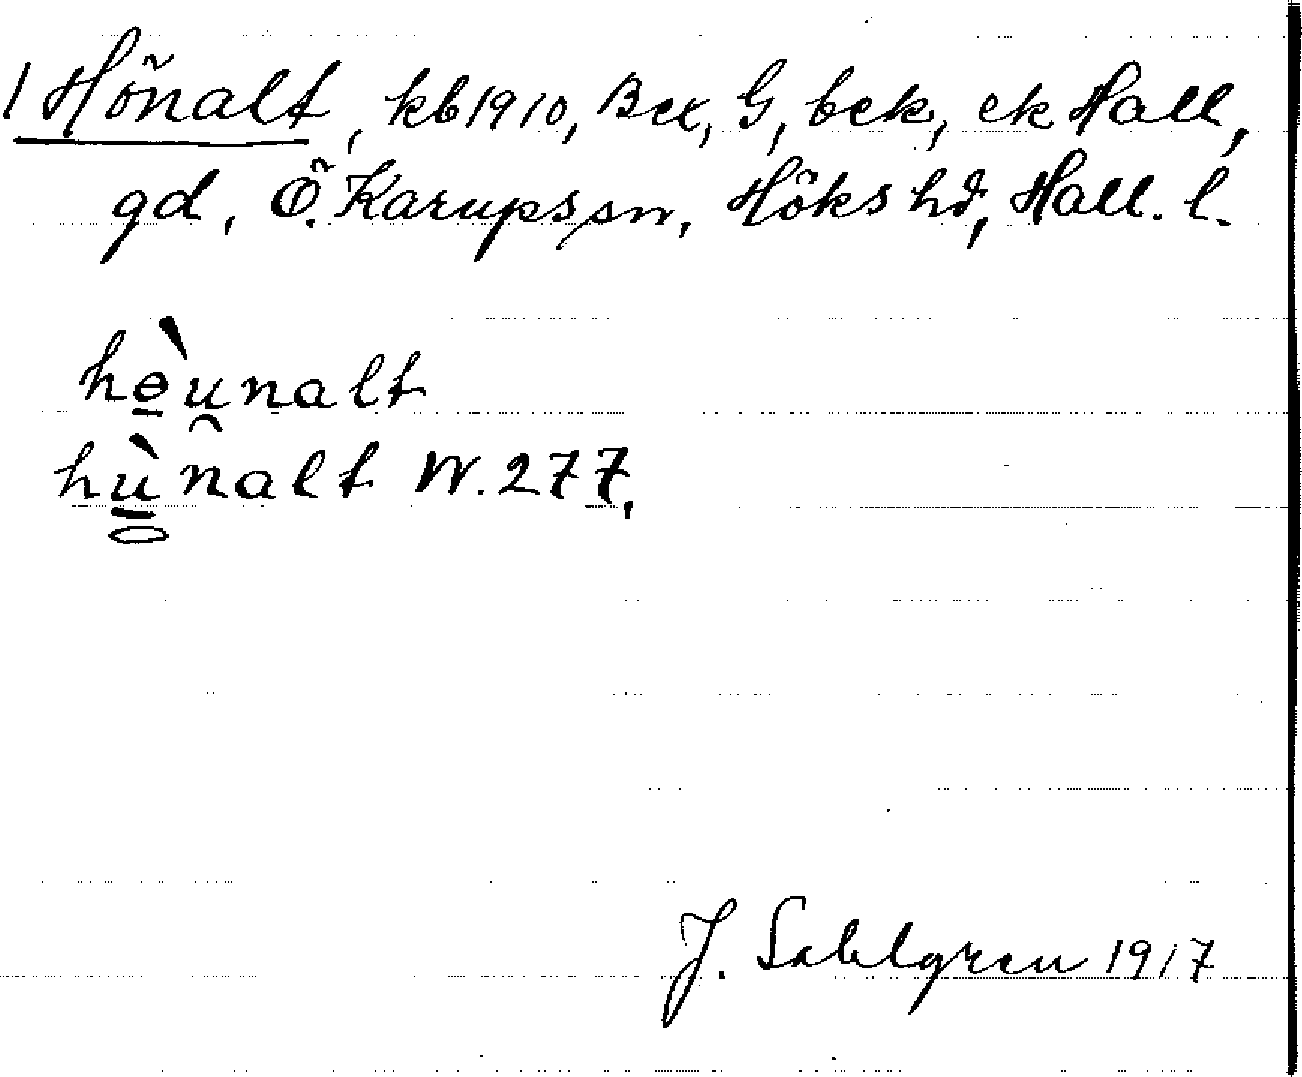 1 Hönalt, kb 1910, Bex, G, bek, ek Hall,
gd, Ö. Karups sn, Höks hd, Hall. l.
hөùnalt
hùnalt W. 277,
J. Sahlgren 1917